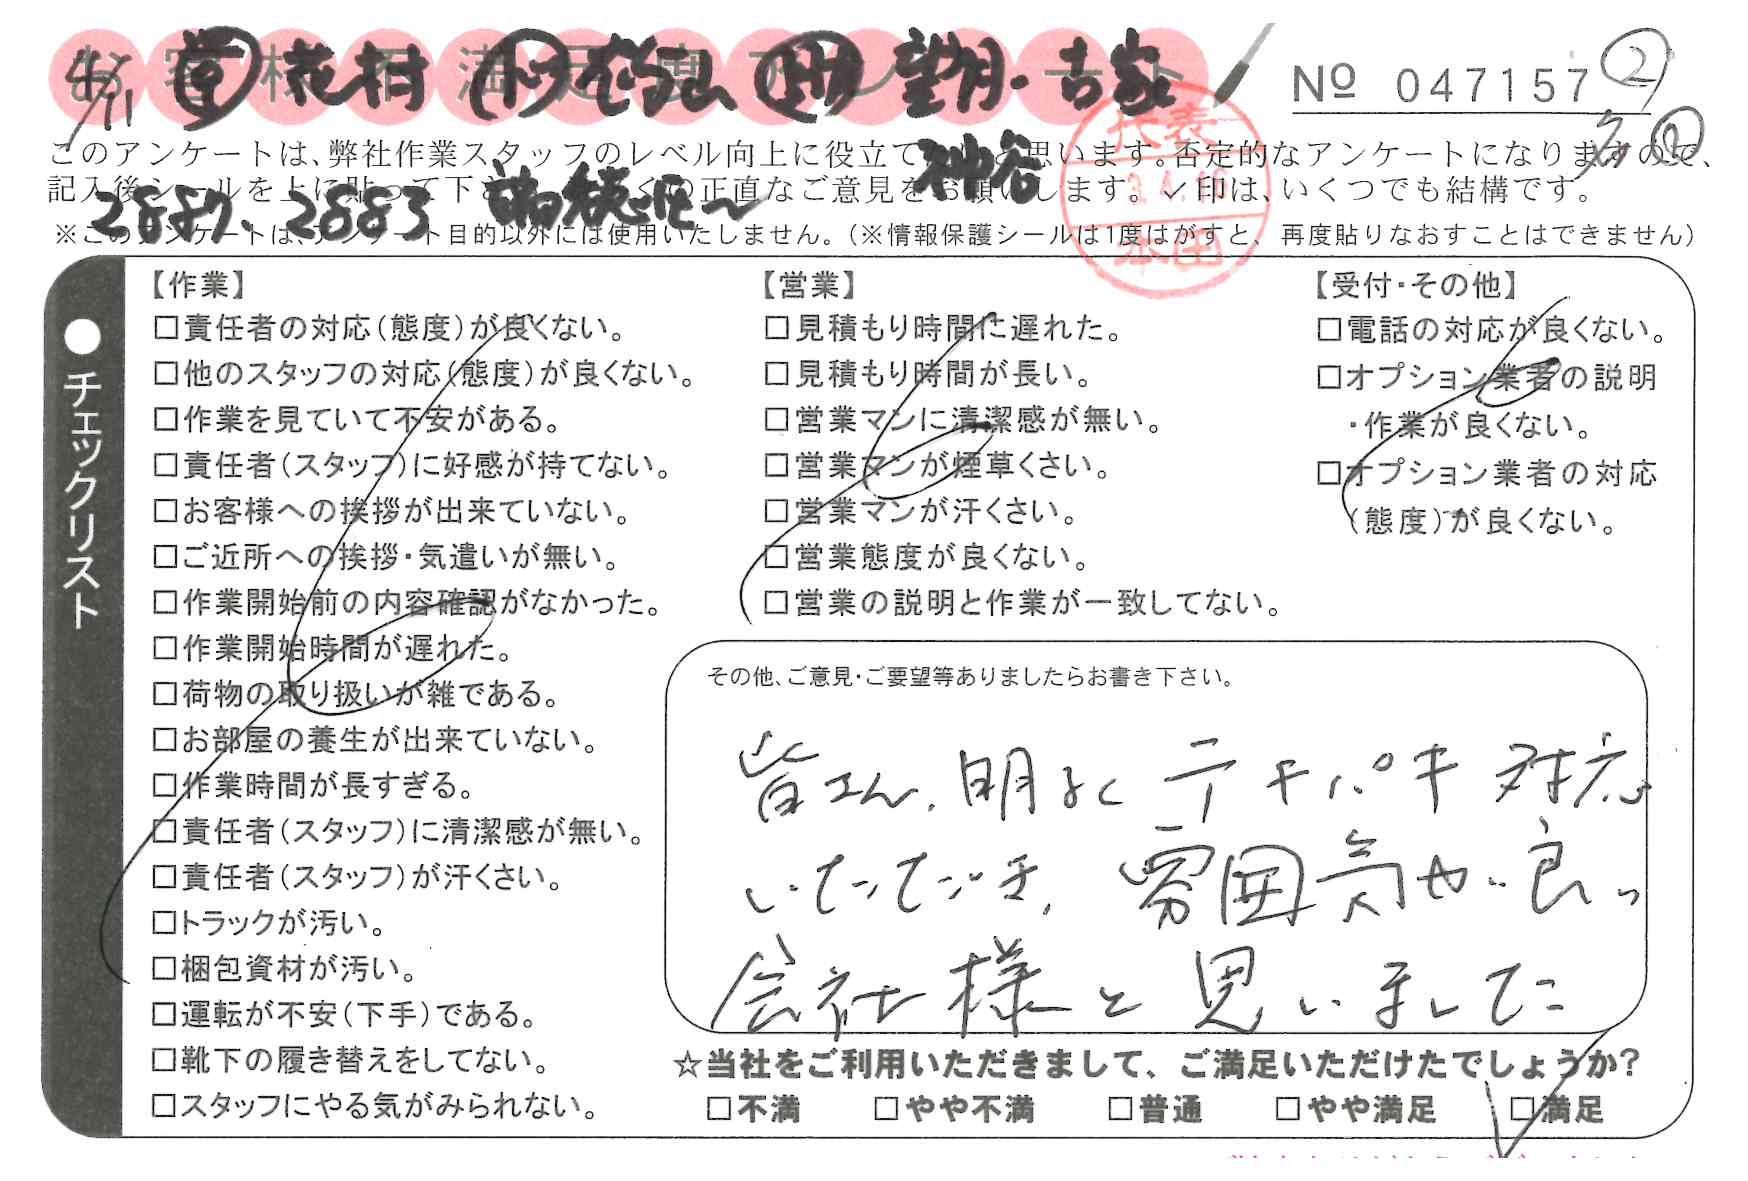 お客様不満足度アンケート
4/11 堂 花村 望月・古家
№ 047157 ②
このアンケートは、弊社作業スタッフのレベル向上に役立て 思います。否定的なアンケートになりますので、
記入後シールを上に貼って下さ くの正直なご意見をお願いします。✓印は、いくつでも結構です。
2887、2883 神谷
※このアンケートは、アンケート目的以外には使用いたしません。(※情報保護シールは1度はがすと、再度貼りなおすことはできません)
代表
3.4.16
本田
●チェックリスト
【作業】
□責任者の対応(態度)が良くない。
□他のスタッフの対応(態度)が良くない。
□作業を見ていて不安がある。
□責任者(スタッフ)に好感が持てない。
□お客様への挨拶が出来ていない。
□ご近所への挨拶・気遣いが無い。
□作業開始前の内容確認がなかった。
□作業開始時間が遅れた。
□荷物の取り扱いが雑である。
□お部屋の養生が出来ていない。
□作業時間が長すぎる。
□責任者(スタッフ)に清潔感が無い。
□責任者(スタッフ)が汗くさい。
□トラックが汚い。
□梱包資材が汚い。
□運転が不安(下手)である。
□靴下の履き替えをしてない。
□スタッフにやる気がみられない。
【営業】
□見積もり時間に遅れた。
□見積もり時間が長い。
□営業マンに清潔感が無い。
□営業マンが煙草くさい。
□営業マンが汗くさい。
□営業態度が良くない。
□営業の説明と作業が一致してない。
【受付・その他】
□電話の対応が良くない。
□オプション業者の説明
・作業が良くない。
□オプション業者の対応
(態度)が良くない。
その他、ご意見・ご要望等ありましたらお書き下さい。
皆さん、明るく テキパキ 対応
いただいき、雰囲気が良い
会社様と思いました
☆当社をご利用いただきまして、ご満足いただけたでしょうか?
□不満 □やや不満 □普通 □やや満足 □満足